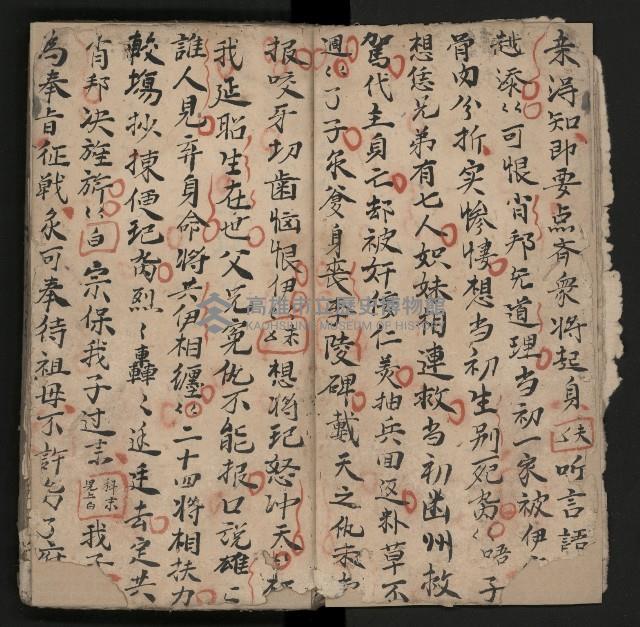 来得知即要点斉衆将起身 夫 听言語
越添〻可恨肖邦无道理当初一家被伊
骨肉分折实惨悽想当初生別死离〻唔子
想恁兄弟有七人姒妹相連救当初幽州救
駕代主身亡却被奸臣仁美抽兵回返料草不
週〻了子年爹身喪 陵碑戴天之仇
报咬牙切歯恼恨伊 想将起怒冲天
我延昭生在世父兄冤仇不能报口說雄
誰人見弃身命将共伊相纏〻二十四将相扶力
較場抄揀便起离烈〻轟〻送去定共
肖邦决旌旂〻 白 宗保我子过来 科末 我子
為奉旨征戦炙可奉待祖母不許多了
高雄市立歷史博物館
KAOHSIUNG MUSEUM OF HISTORY